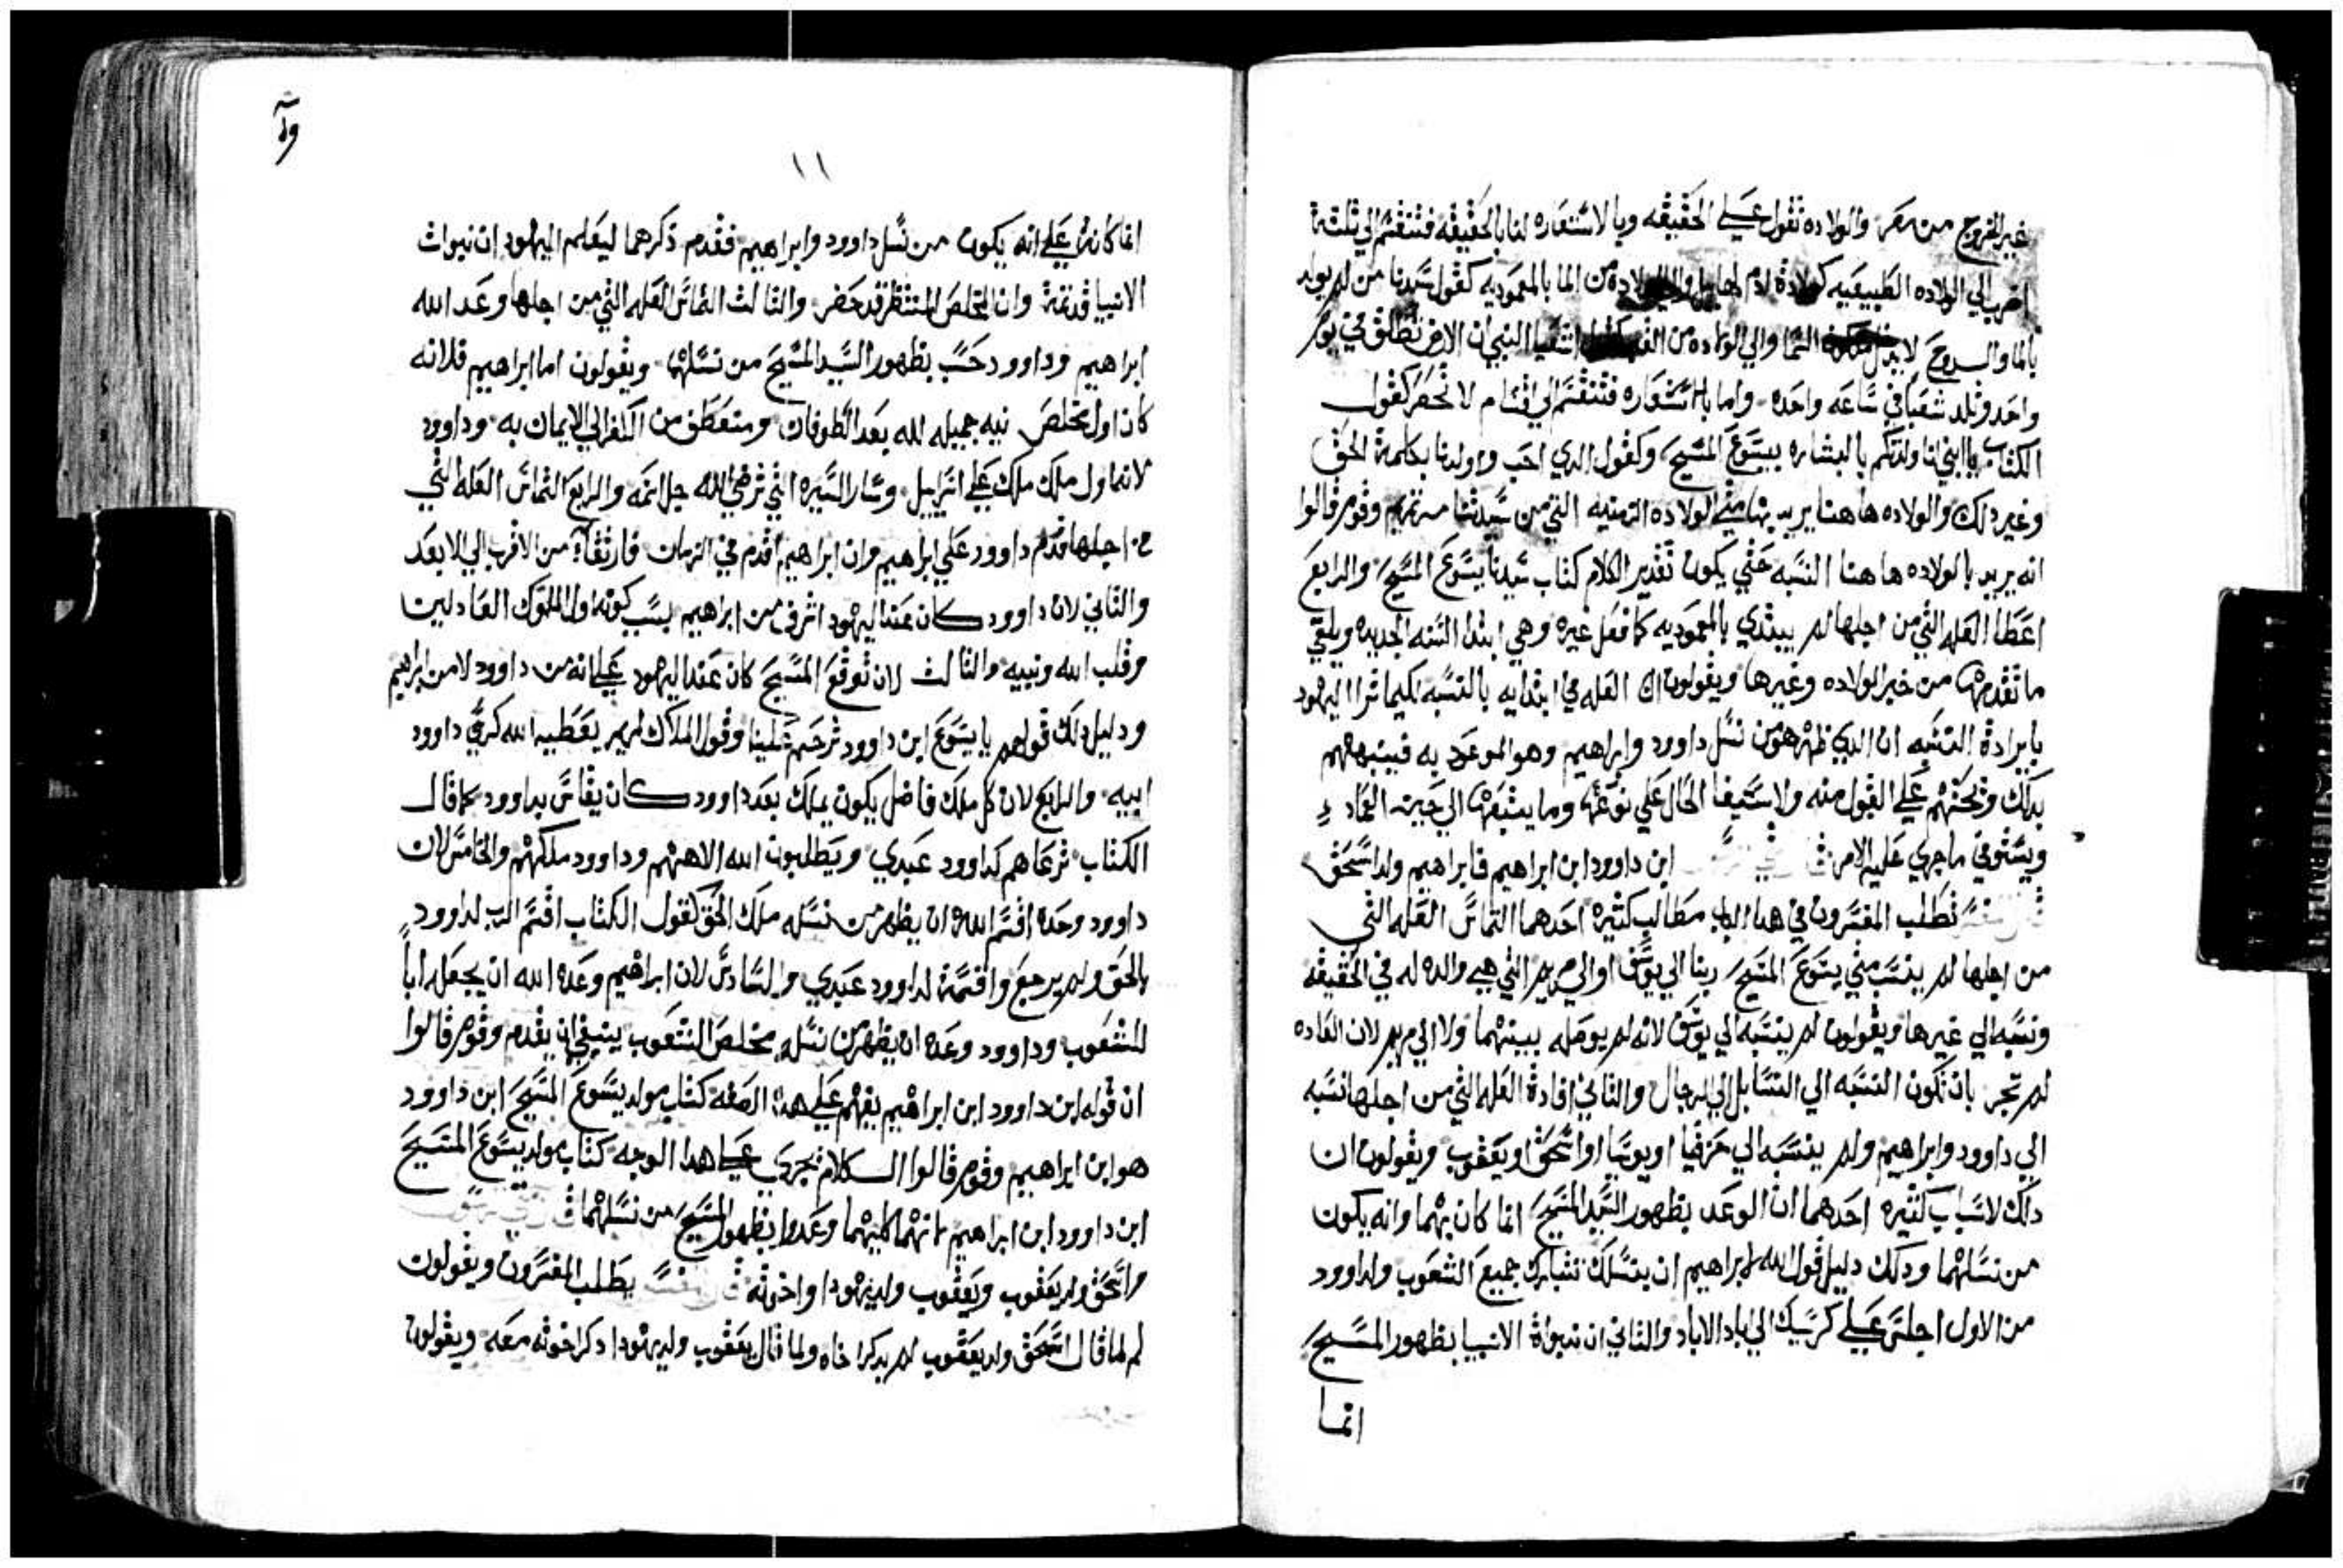 غير الخروج من مصر والولاده تقول علي الحقيقه وبالاستعاره لنا بالحقيقه فتنقسم الي تلتة
اضرب الي الولاده الطبيعيه كولادة ادم لهابيل من الما بالمعموديه كقول سيدنا من لم يولد
بالما والروح لا يدخل السما والي الولاده من كقول اشعيا النبي ان الارض تطلق في يوم
واحد وتلد شعبا في ساعه واحده واما بالاستعاره فتنقسم الي اقسام لا تحصر كقول
الكتاب يا ابني انا ولدتكم بالبشاره بيسوع المسيح وكقول الدي احب واولدنا بكلمة الحق
وغير دلك والولاده هاهنا يريد بها متي الولاده الزمنيه التي من سيدتنا مرتمريم وقوم قالوا
انه يريد بالولاده هاهنا النسبه حتي يكون تقدير الكلام كتاب سيدنا يسوع المسيح والرابع
اعطا العله التي من اجلها لم يبتدي بالمعموديه كما فعل غيره وهي ابتدا السنه الجديده ويلقي
ما تقدمها من خبر الولاده وغيرها ويقولون ان العله في ابتدايه بالنسبه لكيما ترا اليهود
بايرادة النسبه ان الدي ظهر هو من نسل داوود وابراهيم وهو الموعود به فينبههم
بدلك ويحتهم علي القبول منه ولاستيفا الحال علي نوعها وما يتبعها الي حين العماد
ويستوفي ما جري عليه الامر ابن داوود ابن ابراهيم فابراهيم ولد اسحق
تطلب المفسرون في هدا الباب مطالب كتيره احدهما التماس العله التي
من اجلها لم ينسب متي يسوع المسيح ربنا الي يوسف او الي مريم التي هي والده له في الحقيقه
ونسبه الي غيرها ويقولون لم ينسبه الي يوسف لانه لم يوصله بينهما ولا الي مريم لان العاده
لم تجر بان تكون النسبه الي النسا بل الي الرجال والتاني افادة العله التي من اجلها نسبه
الي داوود وابراهيم ولم ينسبه الي حزقيا او يوسيا او اسحق او يعقوب ويقولون ان
دلك لاسباب كتيره احدهما ان الوعد بظهور السيد المسيح انما كان بهما وانه يكون
من نسلهما ودلك دليل قول الله لابراهيم ان بنسلك تتبارك جميع الشعوب ولداوود
من الاول اجلس علي كرسيك الي اباد الاباد والتاني ان نبواة الانبيا بظهور المسيح
انما
١١
انما كانت علي انه يكون من نسل داوود وابراهيم فقدم دكرهما ليعلم اليهود ان نبوات
الانبيا قد تمة وان المخلص المنتظر قد حضر والتالت التماس العله التي من اجلها وعد الله
ابراهيم وداوود حسب بظهور السيد المسيح من نسلهما ويقولون اما ابراهيم فلانه
كان اول مخلص نيه جميله لله بعد الطوفان ومنعطف من الكفر الي الايمان به وداوود
لانه اول ملك ملك علي اسراييل وسار السيره التي ترضي الله جل اسمه والرابع التماس العله التي
من اجلها قدم داوود علي ابراهيم وان ابراهيم اقدم في الزمان فارتقاه من الاقرب الي الابعد
والتاني لان داوود كان عند اليهود اشرف من ابراهيم بسبب كونه اول الملوك العادلين
وقلب الله ونبيه والتالت لان توقع المسيح كان عند اليهود علي انه من داوود لا من ابراهيم
ودليل دلك قولهم يا يسوع ابن داوود ترحم علينا وقول الملاك لمريم يعطيه الله كرسي داوود
ابيه والرابع لان كل ملك فاضل يكون يملك بعد داوود كان يقاس بداوود كما قال
الكتاب ترعاهم كداوود عبدي ويطلبون الله الاههم وداوود ملكهم والخامس لان
داوود وحده اقسم الله ان يظهر من نسله ملك الحق كقول الكتاب اقسم الرب لداوود
بالحق ولم يرجع واقسمة لداوود عبدي والسادس لان ابراهيم وعده الله ان يجعله ابا
للشعوب وداوود وعده ان يظهر من نسله مخلص الشعوب ينبغي ان يقدم وقوم قالوا
ان قوله ابن داوود ابن ابراهيم يفهم علي هده الصفه كتاب مولد يسوع المسيح ابن داوود
هو ابن ابراهيم وقوم قالوا الكلام يجري علي هدا الوجه كتاب مولد يسوع المسيح
ابن داوود ابن ابراهيم لانهما كليهما وعدوا بظهور المسيح من نسلهما
واسحق ولد يعقوب ويعقوب ولد يهودا واخوته يطلب المفسرون ويقولون
لم لما قال اسحق ولد يعقوب لم يدكر اخاه ولما قال يعقوب ولد يهودا دكر اخوته معه ويقولون